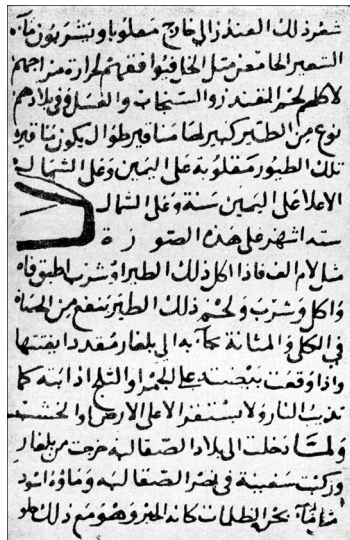 شعر ذلك القندز الى خارج مقلوبا ويشربون مآء
الشعير الحامض مثل الخل فيوافقهم لحرارة مزاجهم
لاكلهم لحم القندز والسنجاب والعسل وفي بلادهم
نوع من الطير كبير لها مناقير طوال يكون مناقير
تلك الطيور مقلوبة على اليمين وعلى الشمال
الاعلا على اليمين ستة وعلى الشمال
ستة اشهر على هذه الصورة
مثل لام الف فاذا اكل ذلك الطير او شرب اطبق فاه
واكل وشرب ولحم ذلك الطير ينفع من الحصاة
في الكلى والمثانة به الى بلغار مقددا بيضتها
واذا وقعت بيضته على الجمد والثلج اذابته كما
تذيب النار ولا يستقر الا على الارض او الخشب
ولما دخلت الى بلاد الصقالبة خرجت من بلغار
وركبت سفينة في نهر الصقالبة وماؤه اسود
مثل مآء بحر الظلمات كانه الحبر وهو مع ذلك حلو